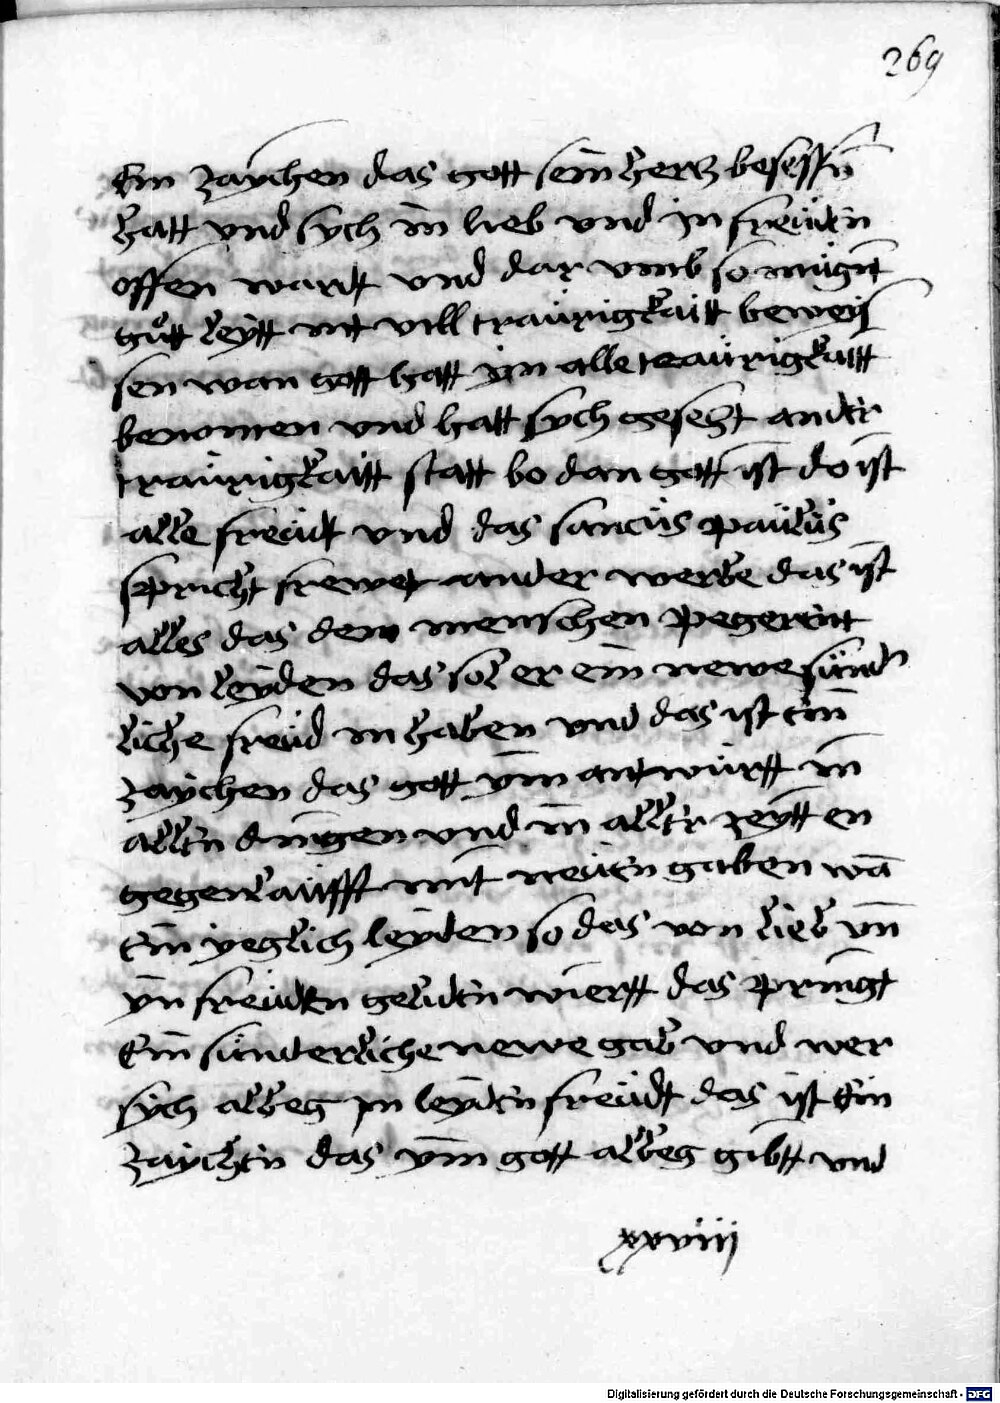 269
Ein zaychen das gott sein hertz besessn̄
hatt vnd sych in lieb vnd in freüdn̄
offen wardt vnd dar vmb so mügn̄t
gütt leytt nit vill traürigkaitt beweys
sen wan gott hatt ym alle traürigkaitt
benomen vnd hatt sych gesetzt an der
traürigkaitt statt bo dan gott ist do ist
alle freüdt vnd das sanctüs paülüs
spricht frewet an der werbe das ist
alles das dem menschen pegerent
von leyden das sol er ein newe sünder
liche freüd in haben vnd das ist ein
zaychen das gott ym antwürtt in
allen dingen vnd in aller zeytten
gegenlaüfft mit neüen gaben wā
Ein yeglich leyden so das von lieb vn̄
yn freüden gelidēn wiertt das pringt
Ein sünderliche newe gab vnd wer
sych albeg in leydēn freüdt das ist Ein
zaychēn das ym gott albeg gibtt vnd
xxviij
Digitalisierung gefördert durch die Deutsche Forschungsgemeinschaft - DFG